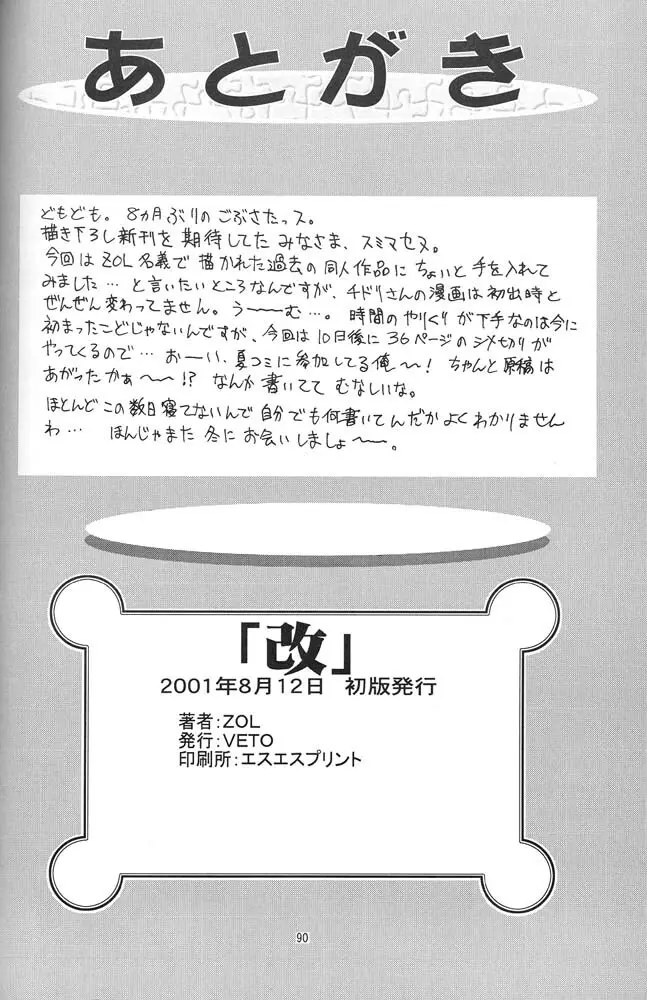 あとがき
どもども。8ヵ月ぶりのごぶさたっス。
描き下ろし新刊を期待してたみなさま、スミマセヌ。
今回はZOL名義で描かれた過去の同人作品にちょいと手を入れて
みました…と言いたいところなんですが、チドリさんの漫画は初出時と
ぜんぜん変わってません。うーーむ…。時間のやりくりが下手なのは今に
初まったこどじゃないんですが、今回は10日後に36ページのシメ切りが
やってくるので…おーーい、夏コミに参加してる俺〜!ちゃんと原稿は
あがったかぁ〜〜!?なんか書いててむなしいな。
ほとんどこの数日寝てないんで自分でも何書いてんだかよくわかりません
わ…ほんじゃまた冬にお会いしましょ〜〜。
「改」
2001年8月12日 初版発行
著者:ZOL
発行:VETO
印刷所:エスエスプリント
90